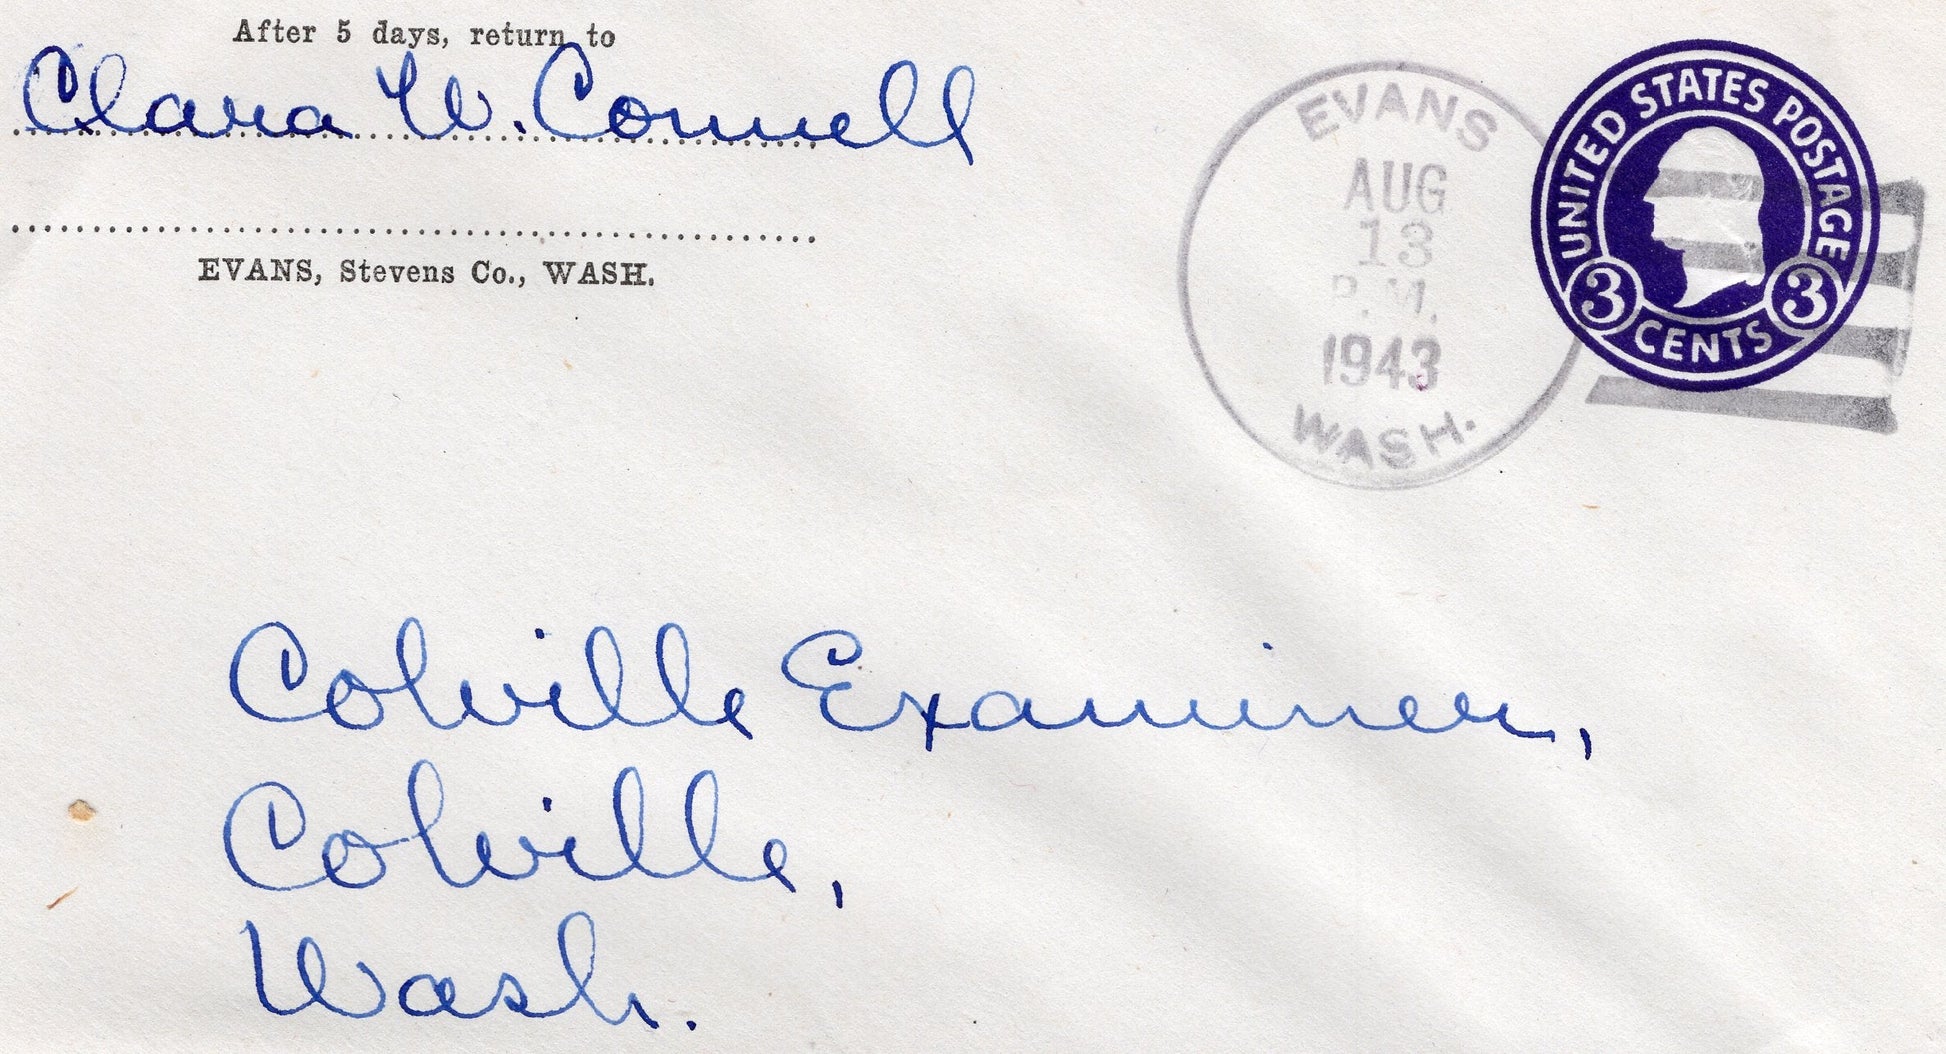 After 5 days, return to
Clara W. Connell
EVANS, Stevens Co., WASH.
EVANS
AUG
13
P.M.
1943
WASH.
UNITED STATES POSTAGE
3 CENTS 3
Colville Examiner,
Colville,
Wash.